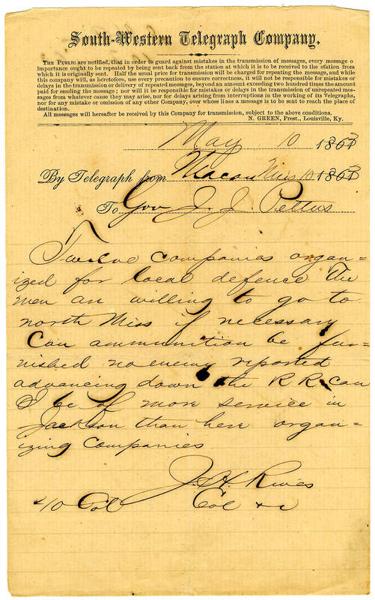 South-Western Telegraph Company.
THE PUBLIC are notified, that in order to guard against mistakes in the transmission of messages, every message of
importance ought to be repeated by being sent back from the station at which it is to be received to the station from
which it is originally sent. Half the usual price for transmission will be charged for repeating the message, and while
this company will, as heretofore, use every precaution to ensure correctness, it will not be responsible for mistakes or
delays in the transmission or delivery of repeated messages, beyond an amount exceeding two hundred times the amount
paid for sending the message; nor will it be responsible for mistakes or delays in the transmission of unrepeated messages
from whatever cause they may arise, nor for delays arising from interruptions in the working of its Telegraphs,
nor for any mistake or omission of any other Company, over whose lines a message is to be sent to reach the place of
destination.
All messages will hereafter be received by this Company for transmission, subject to the above conditions.
N. GREEN, Prest., Louisville, Ky.
May 10 1863
By Telegraph from Macon Miss 10 1863
To Gov J. J. Pettus
Twelve companies organ-
ized for local defence The
men are willing to go to
north Miss if necessary
Can ammunition be fur-
nished no enemy reported
advancing down the R R can
I be of more service in
Jackson than here organ-
izing companies
J. H. Rives
40 Col Col &c